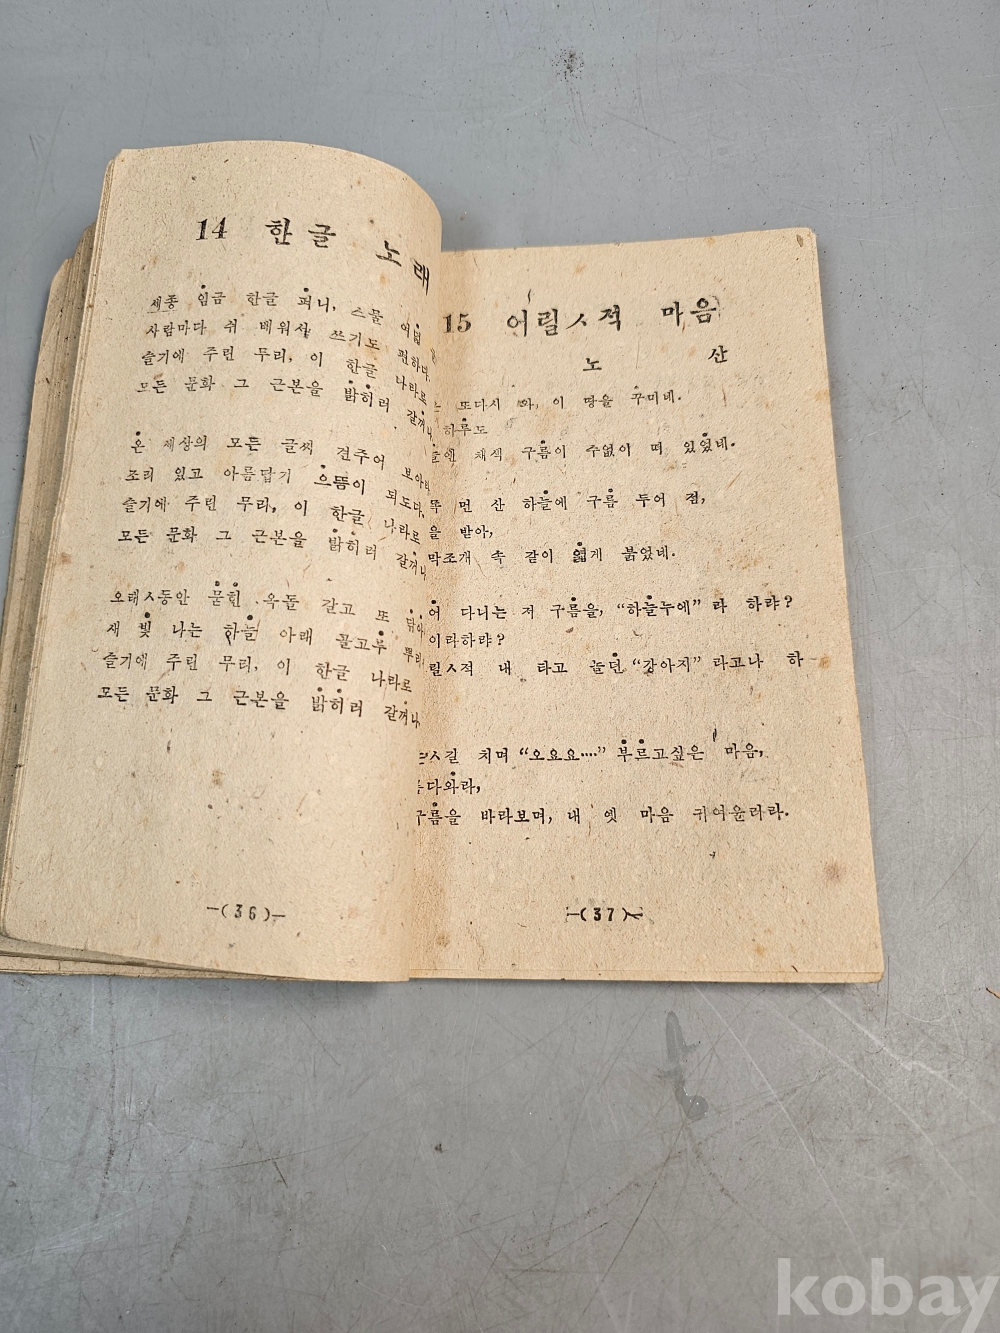 14 한글 노래
세종 임금 한글 펴니, 스물 여덟
사람마다 쉬 배워서 쓰기도 편하다.
슬기에 주린 무리, 이 한글 나라로
모든 문화 그 근본을 밝히러 갈꺼나.
온 세상의 모든 글씨 견주어 보아라.
조리 있고 아름답기 으뜸이 되도다.
슬기에 주린 무리, 이 한글 나라로
모든 문화 그 근본을 밝히러 갈꺼나.
오래ㅅ동안 묻힌 옥돌 갈고 또 닦아
새 빛 나는 하늘 아래 골고루 뿌리
슬기에 주린 무리, 이 한글 나라로
모든 문화 그 근본을 밝히러 갈꺼나.
—(36)—
15 어릴ㅅ적 마음
노 산
또다시 와, 이 땅을 꾸미네.
하루도
채색 구름이 수없이 떠 있었네.
먼 산 하늘에 구름 두어 점,
을 받아,
조개 속 같이 엷게 붉었네.
다니는 저 구름을, “하늘누에”라 하랴?
이라하랴?
릴ㅅ적 내 타고 놀던 “강아지”라고나 하
ㅅ길 치며 “오요요····” 부르고싶은 마음,
다와라,
구름을 바라보며, 내 옛 마음 귀여울라라.
—(37)—
kobay